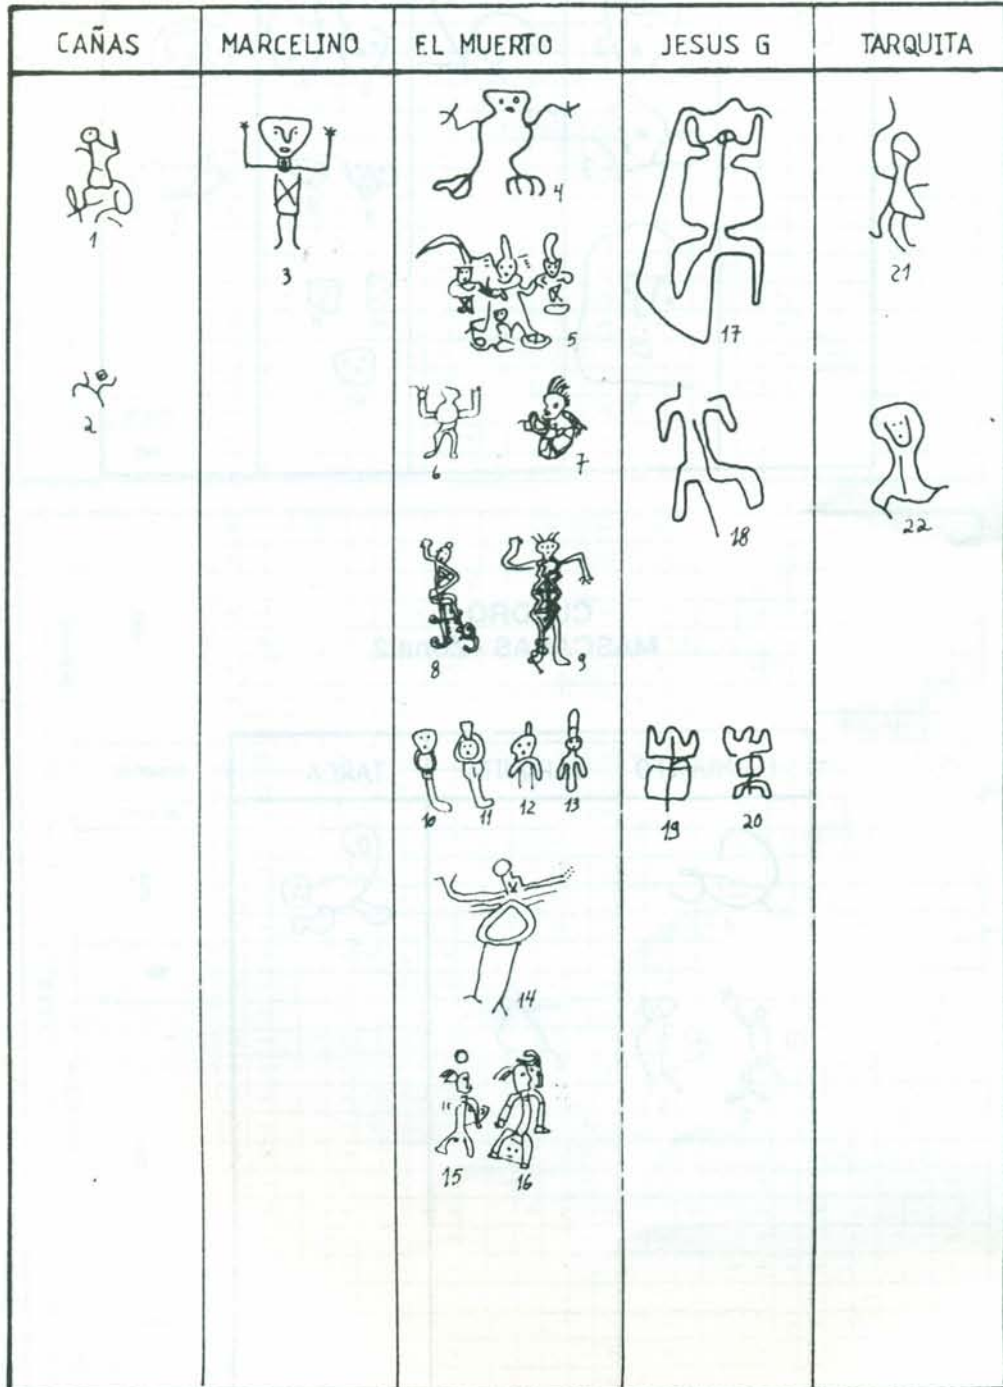 CAÑAS MARCELINO EL MUERTO JESUS G TARQUITA
1
2
3
4
5
6 7
8 9
10 11 12 13
14
15 16
17
18
19 20
21
22